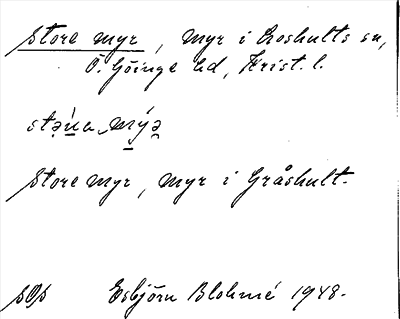 Store myr, myr i Loshults sn,
Ö. Göinge hd, Krist. l.
Store myr, myr i Gråshult.
Esbjörn Blohmé 1948.